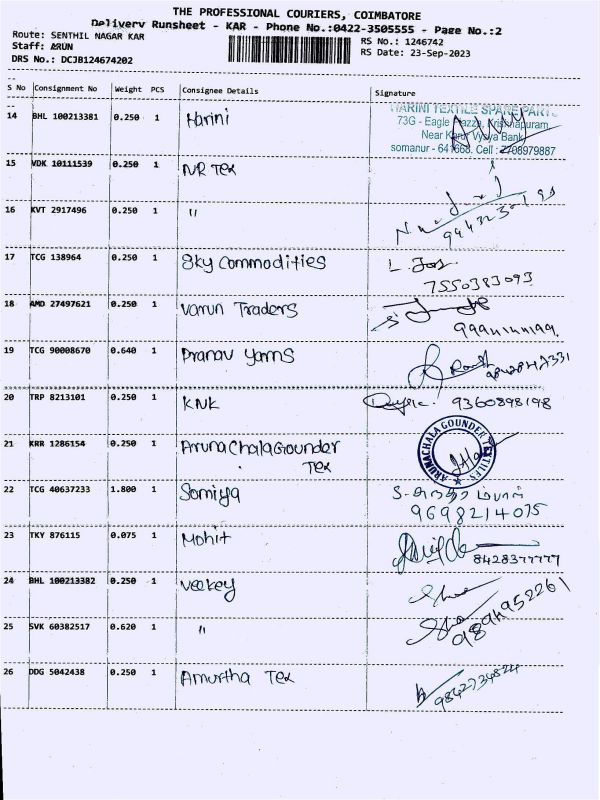 THE PROFESSIONAL COURIERS, COIMBATORE
Delivery Runsheet - KAR - Phone No.:0422-3505555 - Page No.:2
Route: SENTHIL NAGAR KAR
RS No.: 1246742
Staff: ARUN
RS Date: 23-Sep-2023
DRS No.: DCJB124674202
S No Consignment No Weight PCS Consignee Details Signature
14 BHL 100213381 0.250 1 Harini
HARINI TEXTILE SPARE PARTS
73G - Eagle Plazza, Krishnapuram,
Near Karur Vysya Bank
somanur - 641668. Cell : 2708979887
15 VDK 10111539 0.250 1 NR Tex
16 KVT 2917496 0.250 1 "
17 TCG 138964 0.250 1 Sky Commodities
7550383093
18 AMD 27497621 0.250 1 Varun Traders
19 TCG 90008670 0.640 1 Pranav Yarns
20 TRP 8213101 0.250 1 KNK 9360898198
21 KRR 1286154 0.250 1 ArunaChalaGounder
Tex
ARUNACHALA GOUNDER TEXTILES
22 TCG 40637233 1.800 1 Somiya
9698214075
23 TKY 876115 0.075 1 Mohit
8428377777
24 BHL 100213382 0.250 1 Veekey
25 SVK 60382517 0.620 1 "
9894952261
26 DDG 5042438 0.250 1 Amurtha Tex
9842734824